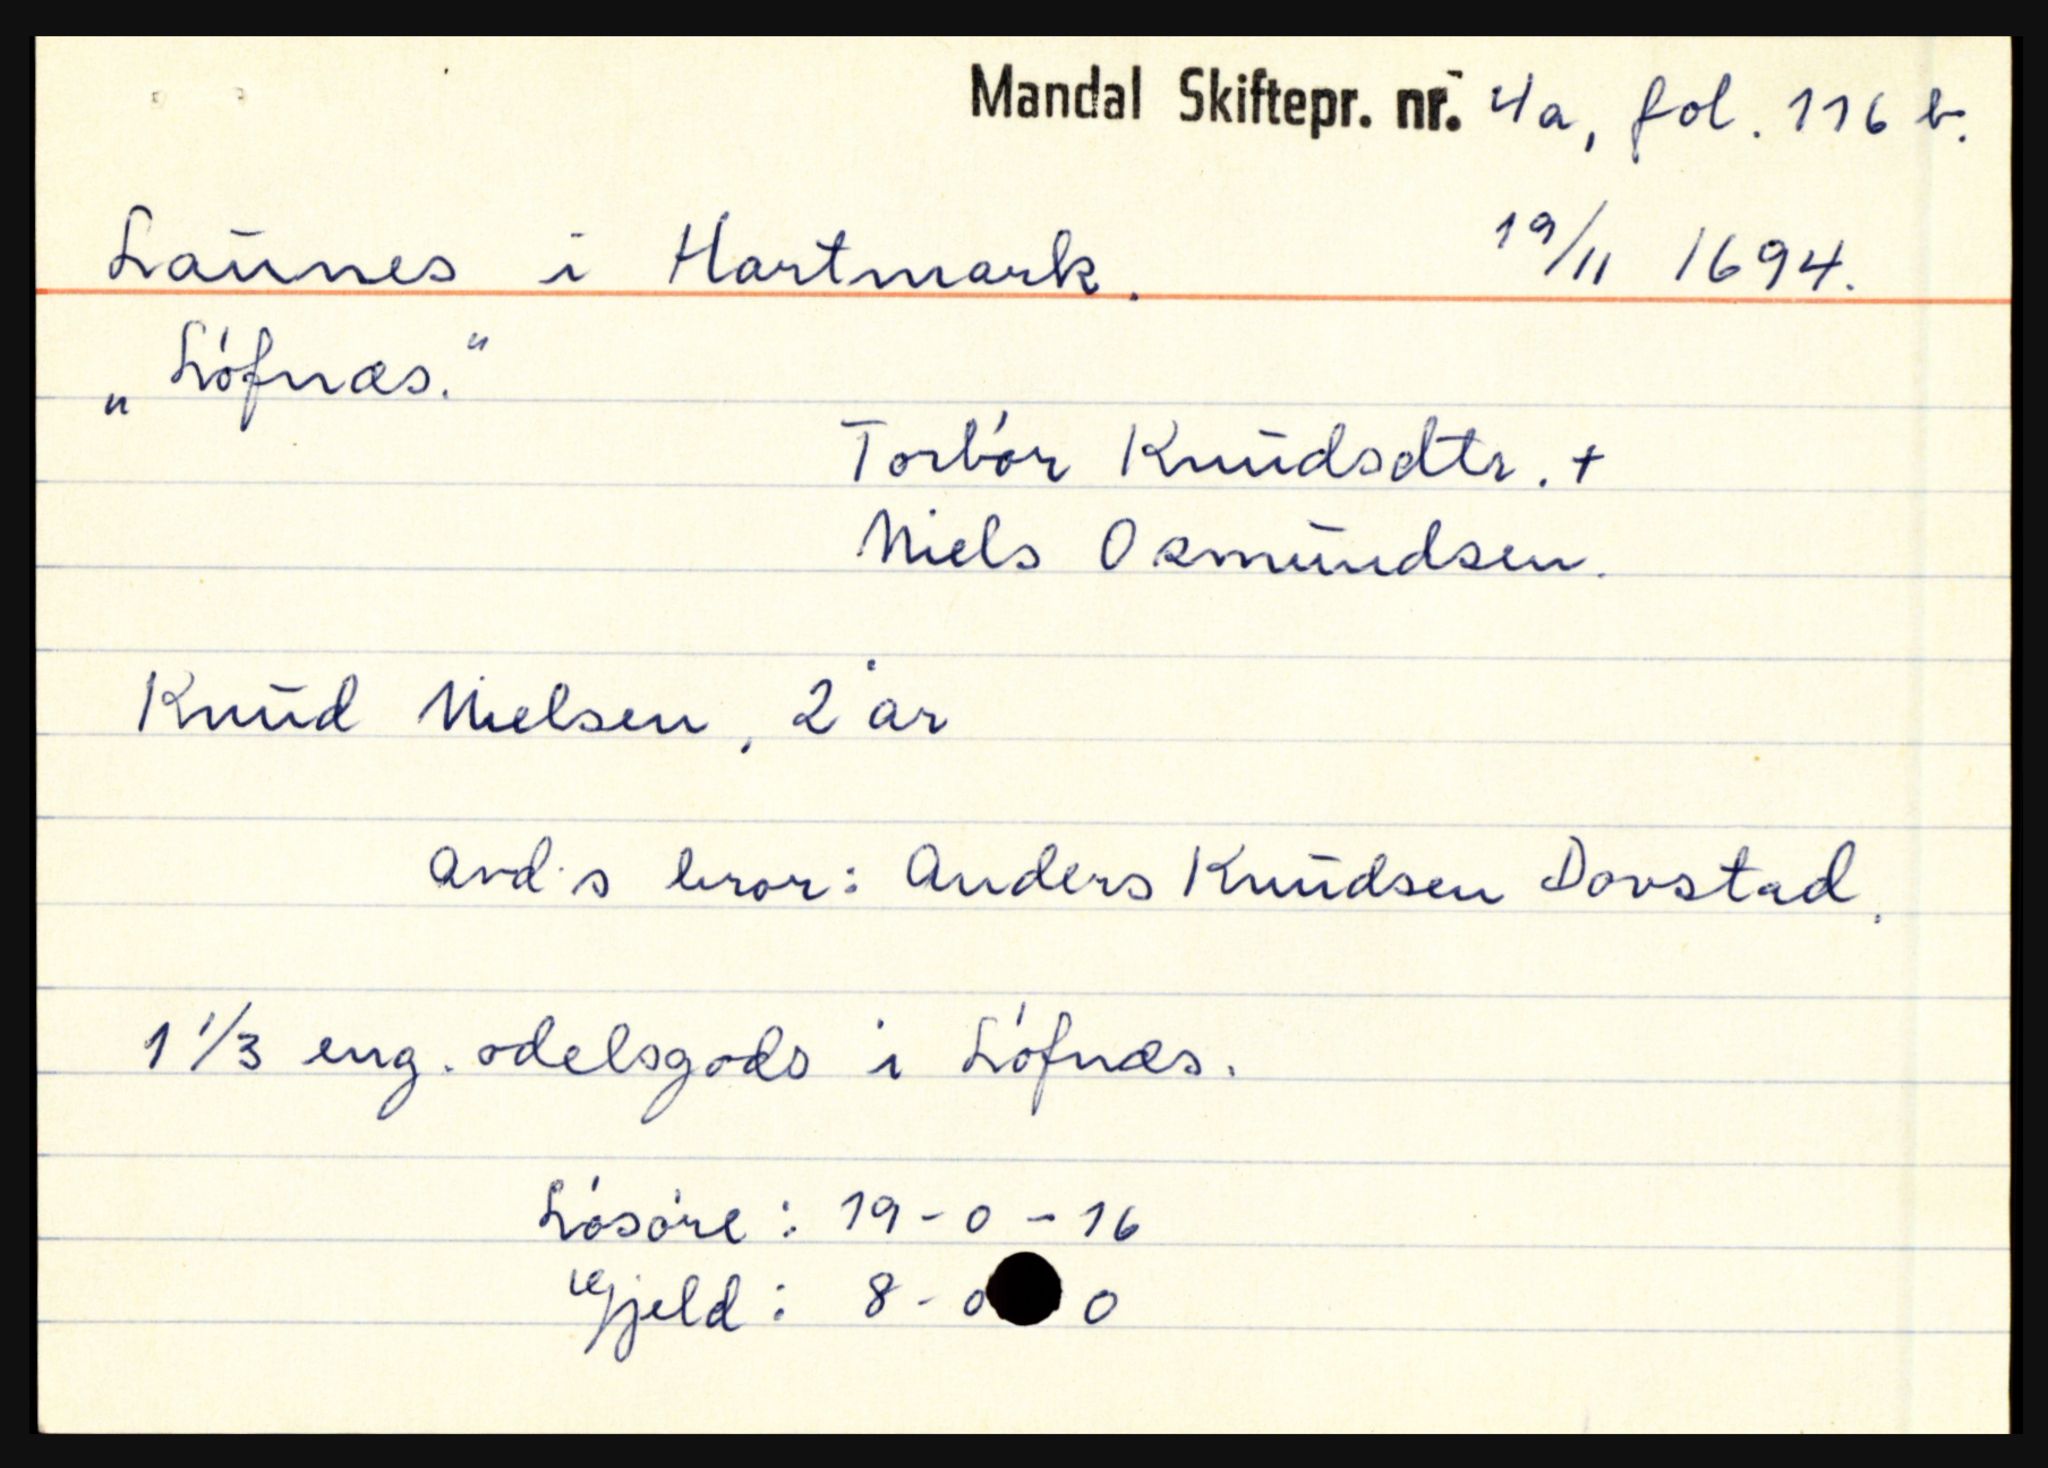 Mandal Skiftepr. nr. 4a, fol. 116 b.
Launes i Hartmark. 19/11 1694.
„Löfnæs."
Torbör Knudsdtr. +
Niels Osmundsen.
Knud Nielsen, 2 år
Avd.s bror: Anders Knudsen Dovstad.
1 1/3 eng. odelsgods i Löfnæs.
Lösöre: 19-0-16
Gjeld: 8-0 0